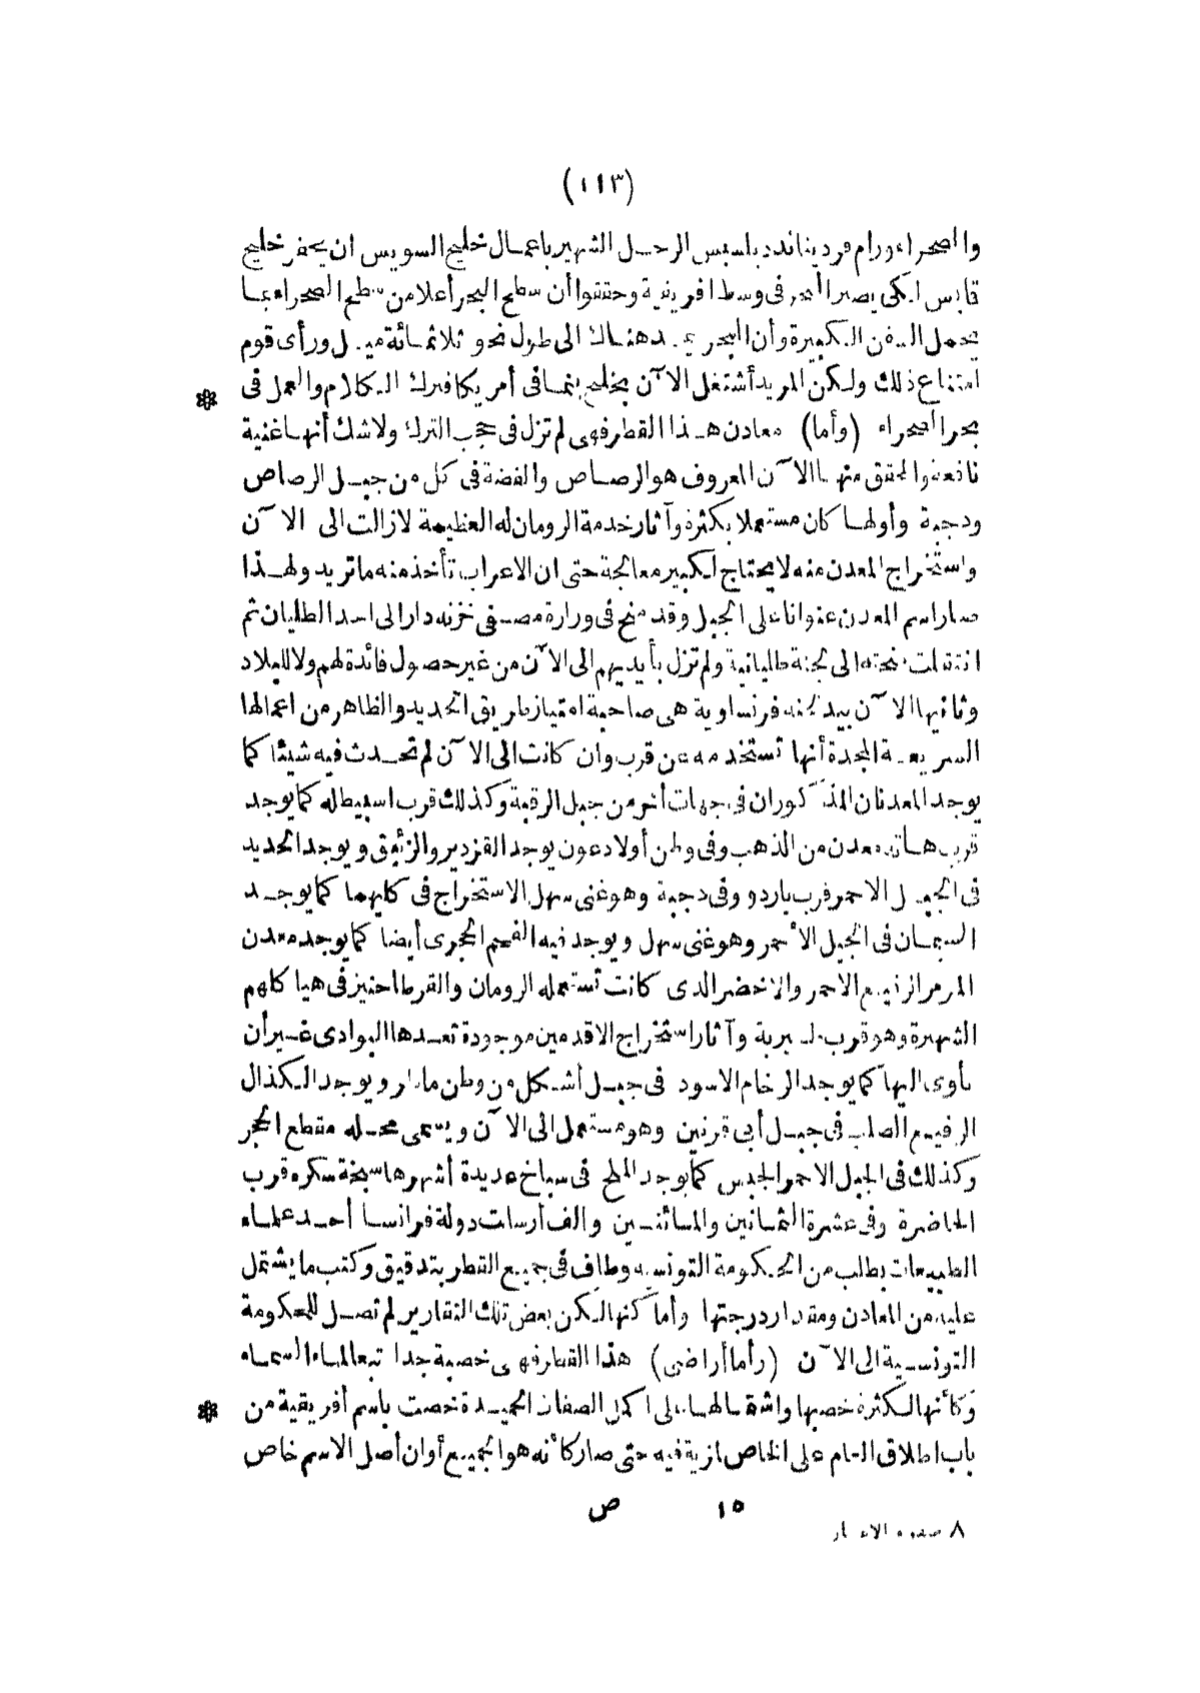 (١١٣)
والصحراء ورام فرديناند دلسبس الرجل الشهير باعمال خليج السويس ان يحفر خليج
قابس لكى يصير البحر فى وسط افريقية وحققوا أن سطح البحر أعلا من سطح الصحراء بما
يحمل السفن الكبيرة وأن البحر يمد هناك الى طول نحو ثلاثمائة ميل ورأى قوم
امتناع ذلك ولكن المريد أشتغل الآن بخليج بنما فى أمريكا فترك الكلام والعمل فى
بحر الصحراء (وأما) معادن هذا القطر فهى لم تزل فى حجب الترك ولاشك أنها غنية
نافعة والمحقق منها الآن المعروف هو الرصاص والفضة فى كل من جبل الرصاص
ودجبة وأولها كان مستعملا بكثرة وآثار خدمة الرومان له العظيمة لازالت الى الآن
واستخراج المعدن منه لا يحتاج لكبير معالجة حتى ان الاعراب تأخذ منه ما تريد ولهذا
صار اسم المعدن عنوانا على الجبل وقد منح فى وزارة مصطفى خزنه دار الى احد الطليان ثم
انتقلت منحته الى لجنة طليانية ولم تزل بأيديهم الى الآن من غير حصول فائدة لهم ولا للبلاد
وثانيها الآن بيد لجنة فرنساوية هى صاحبة امتياز طريق الحديد والظاهر من اعمالها
السريعة المجدة أنها تستخدمه عن قرب وان كانت الى الآن لم تحدث فيه شيئا كما
يوجد المعدنان المذكوران فى جهات أخر من جبل الرقبة وكذلك قرب اسبيطله كما يوجد
قرب هاته معدن من الذهب وفى وطن أولاد عون يوجد القزدير والزئبق ويوجد الحديد
فى الجبل الاحمر قرب باردو وفى دجبة وهو غنى سهل الاستخراج فى كليهما كما يوجد
السبمان فى الجبل الأحمر وهو غنى سهل ويوجد فيه الفحم الحجرى أيضا كما يوجد معدن
المرمر الرفيع الاحمر والاخضر الذى كانت تستعمله الرومان والقرطاجنيز فى هياكلهم
الشهيرة وهو قرب طبربة وآثار استخراج الاقدمين موجودة تعمدها البوادى غير أن
تأوى اليها كما يوجد الرخام الاسود فى جبل أشكل من وطن ماطر ويوجد الكذال
الرفيع الصلب فى جبل أبى قرنين وهو مستعمل الى الآن ويسمى محله مقطع الحجر
وكذلك فى الجبل الاحمر الجبس كما يوجد الملح فى سباخ عديدة أشهرها سبخة سكره قرب
الحاضرة وفى عشرة الثمانين والمائتين والف أرسات دولة فرانسا أحد علماء
الطبيعات بطلب من الحكومة التونسيه وطاف فى جميع القطر بتدقيق وكتب ما يشتمل
عليه من المعادن ومقدار درجتها وأماكنها لكن بعض تلك التقارير لم تصل للحكومة
التونسية الى الآن (وأما أراضى) هذا القطر فهى خصبة جدا تبعا لماء السماء
وكأنها لكثرة خصبها واشتمالها على اكمل الصفات الحميدة خصت باسم أفريقية من
باب اطلاق العام على الخاص لمزية فيه حتى صار كأنه هو الجميع أوان أصل الاسم خاص
١٥ ص
٨ صفوة الاعتبار